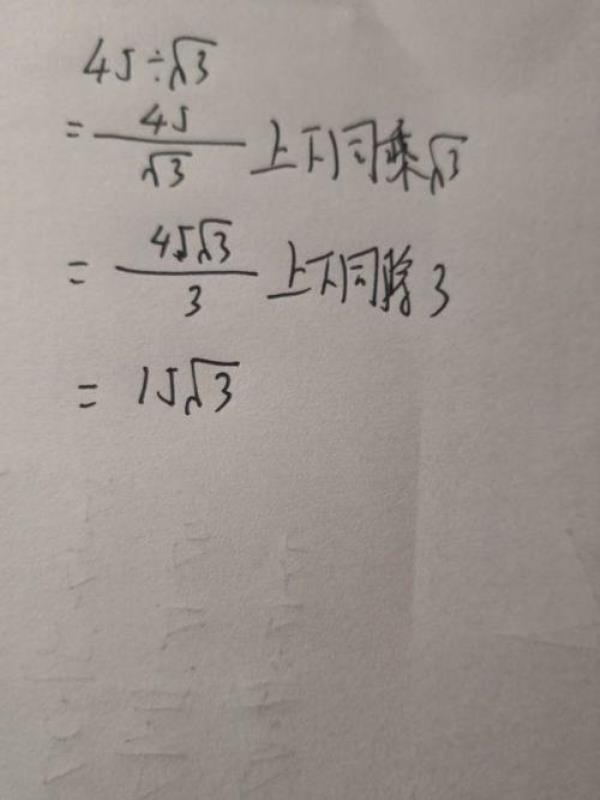 45÷√3
= 45/√3 上下同乘√3
= 45√3/3 上下同除3
= 15√3